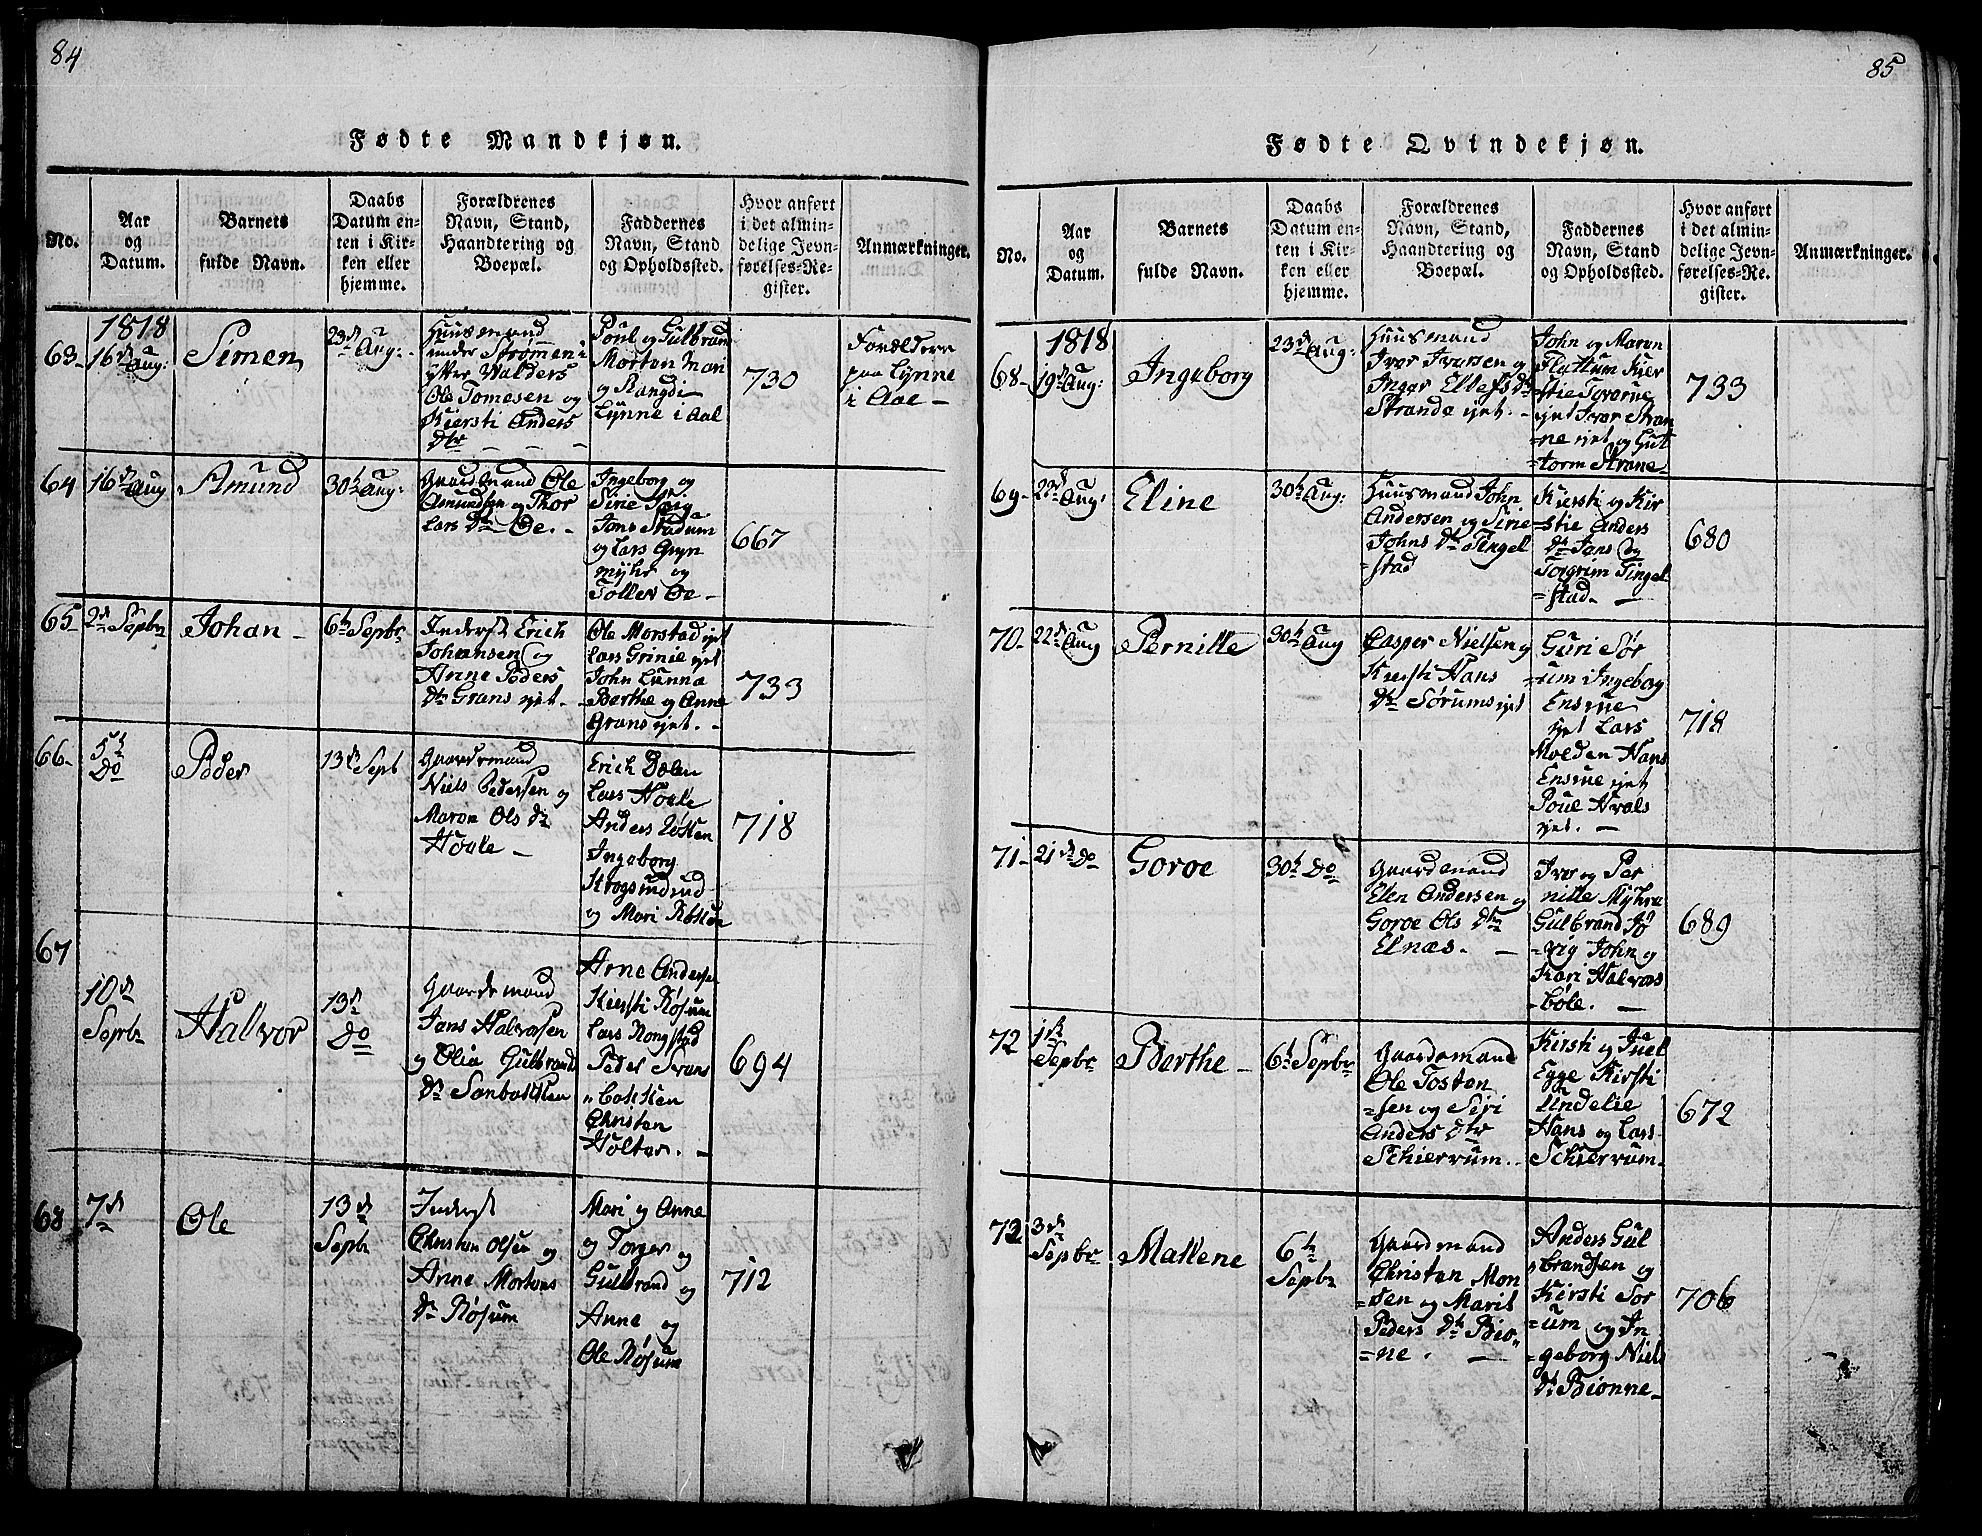 84
Fødte Mandkjøn.
No.
Aar
og
Datum.
Barnets
fulde Navn.
Daabs
Datum en-
ten i Kir-
ken eller
hjemme.
Forældrenes
Navn, Stand,
Haandtering og
Boepæl.
Faddernes
Navn, Stand
og Opholdssted.
Hvor anført
i det almin-
delige Jevn-
førelses-Re-
gister.
Anmærkninger.
1818
63-
16de Aug:
Simen
23de Aug:
Huusmand
under Strømen i
ytter Walders
Ole Tomesen og
Kiersti Anders
Dtr
Poul og Gulbran
Morten Mari
og Rangdi
Lynne i Aal
730
Foreldern
paa Lynne
i Aal -
64
16de Aug
Amund
30te Aug:
Gaardmand Ole
Amundsen og Thor
Lars Dtr Øe. -
Ingeborg og
Sirie
Jons Stadum
og Lars Gryn
myhr og
Tollev Øe -
667
65-
2den Sepbr
Johan -
6te Sepbr
Inderst Erich
Johansen og
Anne Peders
Dtr Grans ejet. -
Ole Morstad ejet
Lars Grinie ejet
John Lunna
Berthe og Anne
Grans ejet. -
733
66-
5te
Do
Peder
13de Sept
Gaardmand
Niels Pedersen og
Maron Ols Dtr
Hoale -
Erich Dalen
Lars Hoale
Anders
Ingeborg
og Mari
718
67
10de
Sepbr
Halvor
13de
Do
Gaardemand
Jans Halvorsen
og Olia Gulbrands
Dr Sanbakken
Arne Anders
Kiersti Røsum
Lars Rongstad
Peder Svens
bakken
Christen
Holter. -
694
68
7de
Ole
13de
Sepbr
Inderst
Christen Olsen og
Anne Mortens
Dr Røsum
Mari og Anne
og Torger og
Gulbrand og
Anne og
Ole Røsum
712
85
Fødte Qvindekjøn.
No.
Aar
og
Datum.
Barnets
fulde Navn.
Daabs
Datum en-
ten i Kir-
ken eller
hjemme.
Forældrenes
Navn, Stand,
Haandtering og
Boepæl.
Faddernes
Navn, Stand
og Opholdssted.
Hvor anført
i det almin-
delige Jevn-
førelses-Re-
gister.
Anmærkninger.
1818
68-
19de Aug:
Ingeborg
23de Aug:
Huusmand
Iver Iversen og
Inger Ellefs Dtr
Strande ejet. -
John og Maron
Flattum Kier
stie
ejet Iver Stran
ne ejet og Gut
=torm Strane-
733
69-
23de Aug:
Eline
30te Aug:
Huusmand John
Andersen og Sirie
Johns Dtr Tingel
=stad
Kiersti og Kir
=stie Anders
Dtr Jans og
Torgrim Tingel
=stad. -
680
70-
22de Aug
Pernille
30te Aug
Casper Nielsen og
Kiersti Hans
Dtr Sørums ejet
Guri Sør
=um Ingeborg
Ensrue
ejet Lars
Molden Hans
Ensrue ejet
Poul Hvals
ejet. -
718
71-
21de Do
Goroe
30te Do
Gaardemand
Elen Andersen og
Goroe Ols Dtr
Elnæs. -
Iver og Per
nille Myhre
Gulbrand Jø
=vig John og
Kari Halvors
=bøle. -
689
72
1ste
Sepbr
Berthe -
6te Sepbr
Gaardemand
Ole Tosten
=sen og Siri
Anders Dtr
Schierrum..
Kirsti og Juel
Egge Kirsti
Undelie
Hans og Lars
Schierrum.
672
73
3de
Sepbr
Mallene
6te
Sepbr
Gaardmand
Christen Mon
=sen og Marit
Peders Dtr Bio
=ne. -
Anders Gul
brandsen og
Kirsti Sør
=um og In
=geborg Niels
Dtr Bionne-
706